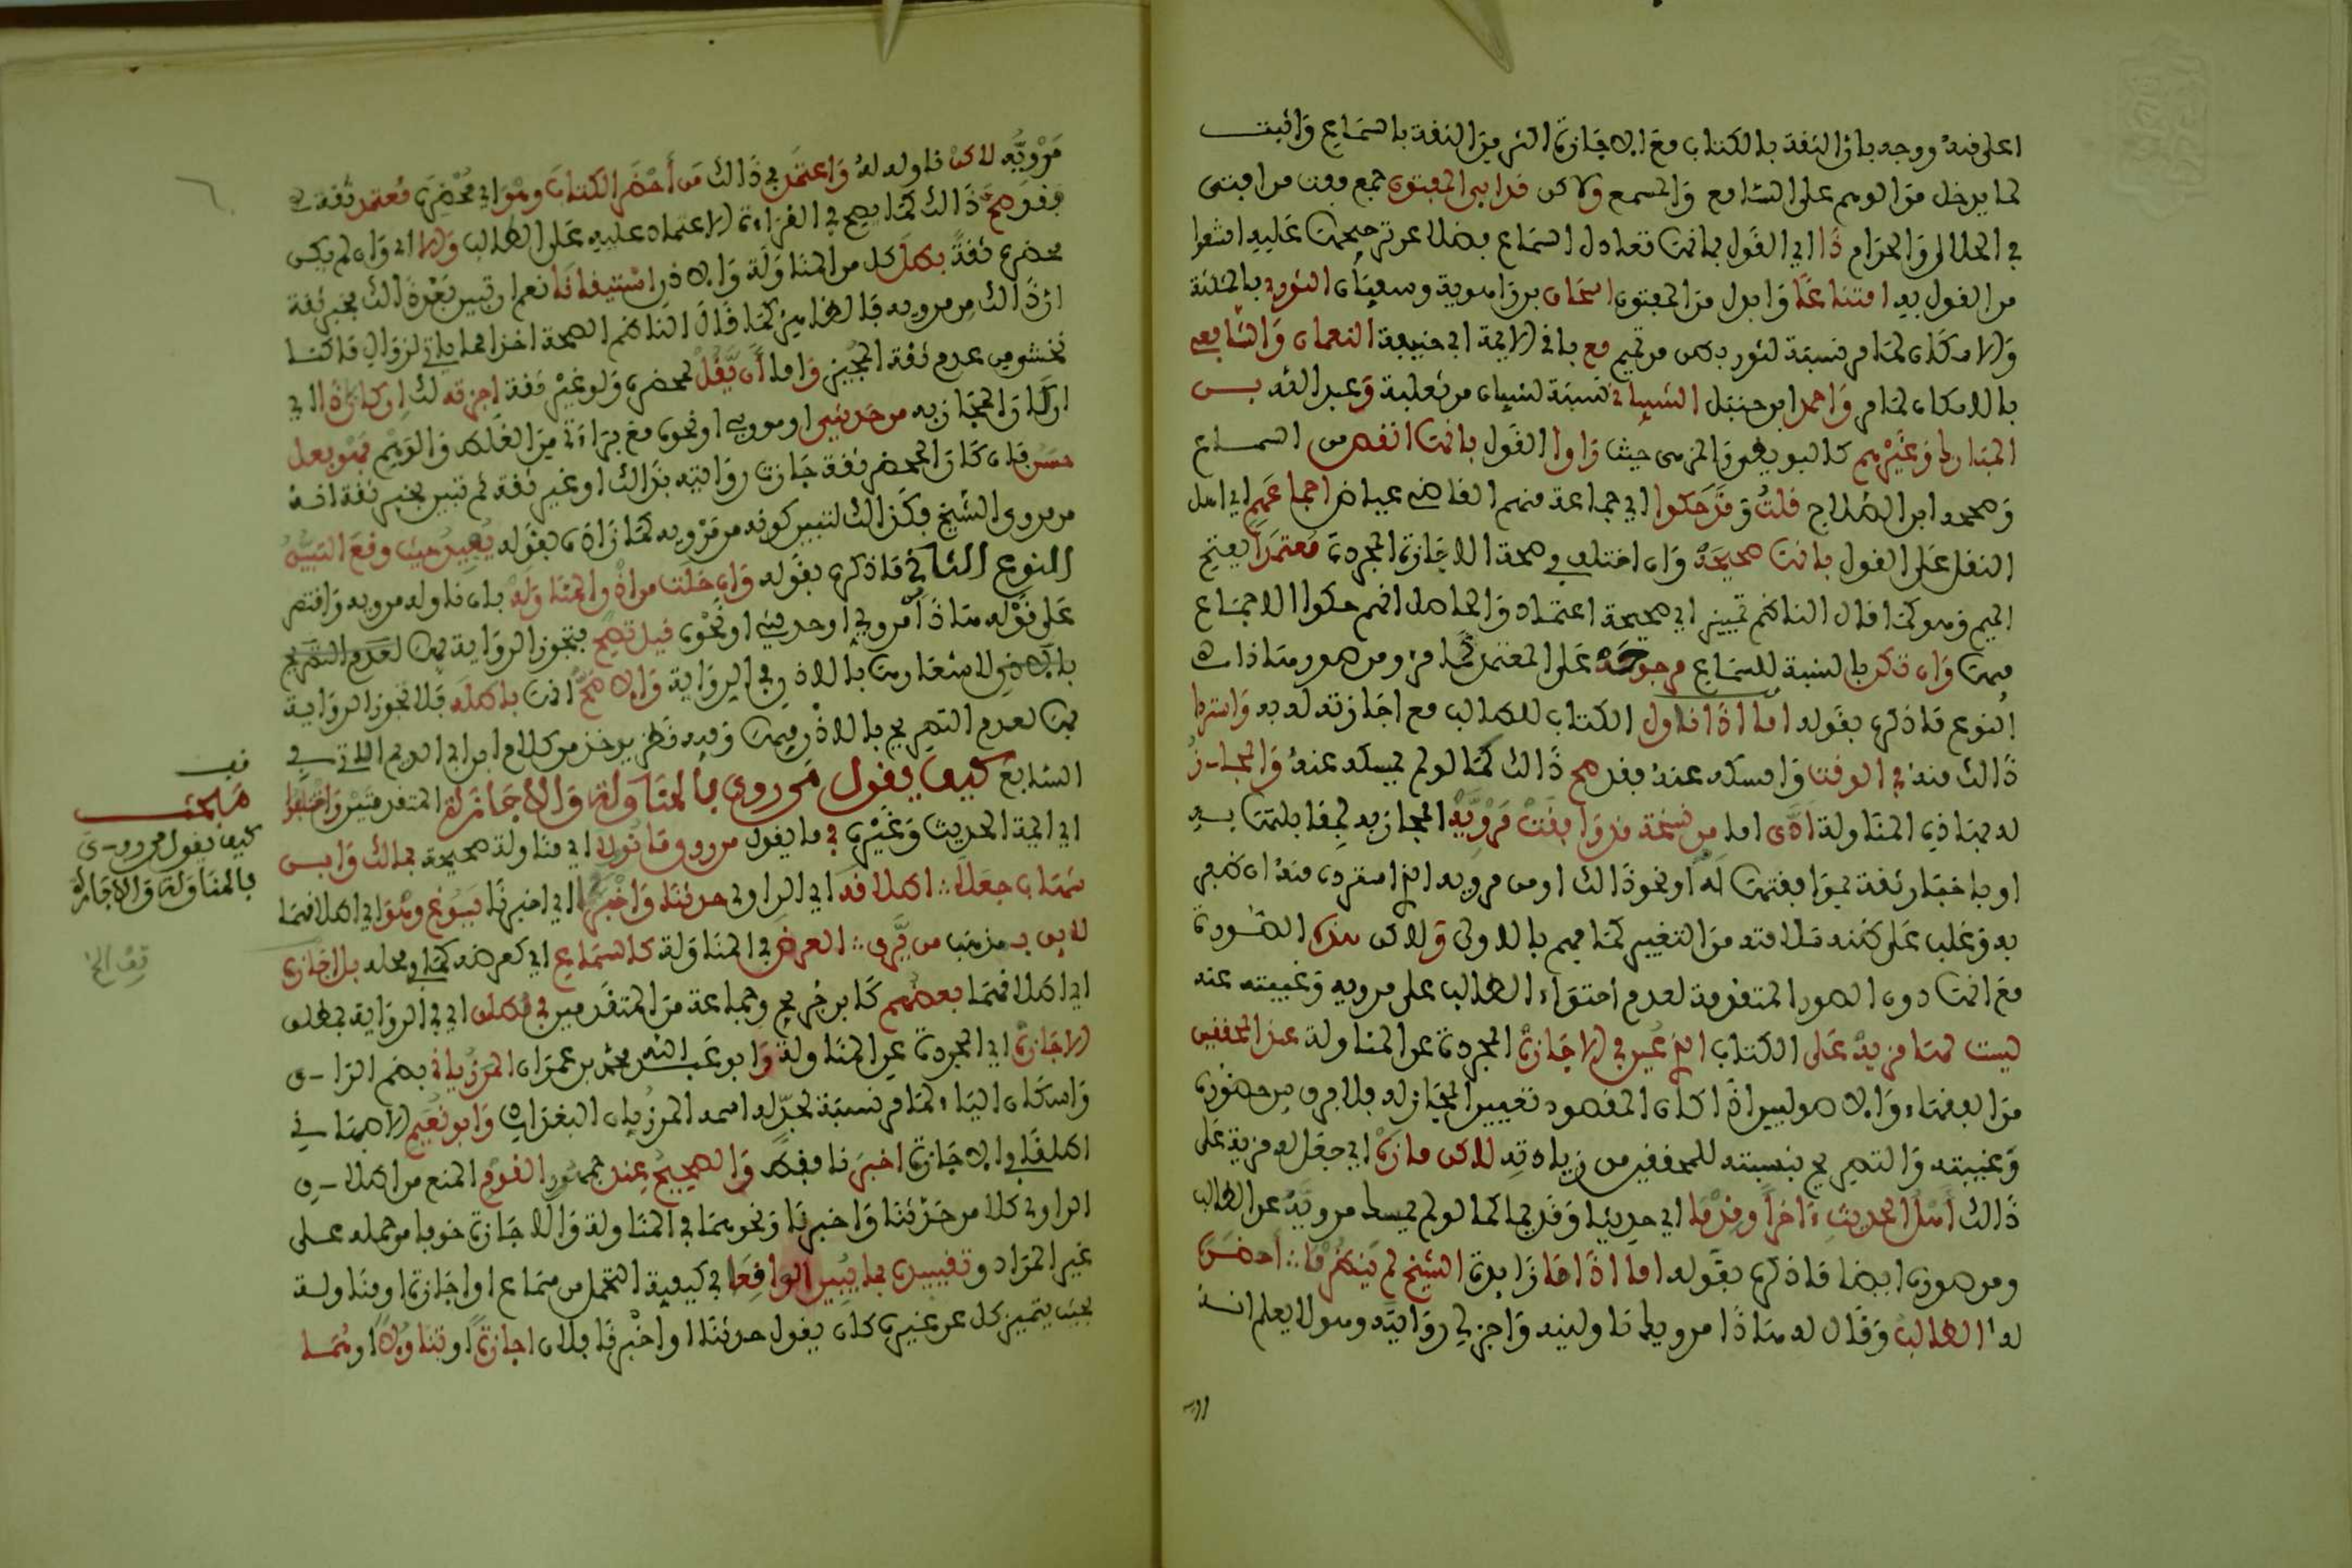 اعلى منه ووجه بان الثقة بالكتاب مع الاجازة اكثر من الثقة بالسماع واثبت
لما يدخل من الوهم على السامع والمسمع ولاكن قد ابى المفتون جمع مفت من افتى
في الحلال والحرام ذا اي القول بانها تعادل السماع فضلا عن ترجيحها عليه امتنعوا
من القول به امتناعا وابدل من المفتون اسحاق بن راهوية وسفيان الثوري بالمثلثة
والاسكان لما مر نسبة لثور بطن من تميم مع باقي الايمة ابي حنيفة النعمان والشافعي
بالاسكان لما مر واحمد بن حنبل الشيباني نسبة لشيبان من ثعلبة وعبد الله بن
المبارك وغيرهم كالبويطي والمزني حيث راوا القول بانها انقص من السماع
وصححه ابن الصلاح قلت وقد حكوا اي جماعة منهم القاضي عياض اجماعهم اي اهل
النقل على القول بانها صحيحة وان اختلف في صحة الاجازة المجردة معتمدا بفتح
الميم وهو كما قال الناظم تمييز اي صحيحة اعتمادا والحاصل انهم حكوا الاجماع
فيها وان تكن بالنسبة للسماع مرجوحة على المعتمد كما مر ومن صور هذا
النوع ما ذكره بقوله اما اذا ناول الكتاب للطالب مع اجازته له به واسترد
ذالك منه في الوقت وامسكه عنده فقد صح ذالك كما لو لم يمسكه عنده والمجاز
له بهاذه المناولة ادى اما من نسخة قد وافقت مرويه المجاز به لمقابلتها به
او باخبار ثقة بموافقتها له او نحو ذالك او من مرويه الذي استرده منه ان ظفر
به وغلب على ظنه سلامته من التغيير كما فهم بالاولى ولاكن هذه الصورة
مع انها دون الصور المتقدمة لعدم احتواء الطالب على مرويه وغيبته عنه
ليست لها مزية على الكتاب الذي عين في الاجازة المجردة عن المناولة عند المحققين
من الفقهاء والاصوليين اذ المقصود تعيين المجاز له فلا فرق بين حضوره
وغيبته والتصريح بنسبته للمحققين من زيادته لاكن مازه اي جعل له مزية على
ذالك اهل الحديث ءاخرا وقدما اي حديثا وقديما كما لو لم يمسك مرويه عن الطالب
ومن صوره ايضا ما ذكره بقوله اما اذا ما زايدة الشيخ لم ينظر ما :: احضره
له الطالب وقال له هاذا مرويك ناولنيه واجز لي روايته وهو لا يعلم انه
مرويه لاكن ناوله له واعتمد في ذالك من احضر الكتاب وهو اي محضره معتمد ثقة
فقد صح ذالك كما يصح في القراءة الاعتماد عليه على الطالب والا اي وان لم يكن
محضره ثقة بطل كل من المناولة والاذن استيقانا نعم ان تبين بعد ذالك بخبر ثقة
ان ذالك من مرويه فالظاهر كما قال الناظم الصحة اخذا مما ياتي لزوال ما كنا
نخشى من عدم ثقة المجيز واما ان يقل لمحضره ولو غير ثقة اجزته لك ان كان ذا اي
ان كان المجاز به من حديثي او مرويي او نحوه مع براءة من الغلط والوهم فهو فعل
حسن فان كان المحضر ثقة جازت روايته بذالك او غير ثقة ثم تبين بخبر ثقة انه
من مروي الشيخ فكذالك لتبين كونه من مرويه كما زاده بقوله يفيد حيث وقع التبين
النوع الثاني ما ذكره بقوله وان خلت من اذن المناولة بان ناوله مرويه واقتصر
على قوله هاذا مرويي او حديثي او نحوه قيل تصح فتجوز الرواية بها لعدم التصريح
بالاذن لاشعارها بالاذن في الرواية والاصح انها باطلة فلا تجوز الرواية
بها لعدم التصريح بالاذن فيها وفيه نظر يوخذ من كلام ابن ابي الدم الاتي في
السابع كيف يقول من روى بالمناولة والاجازة المتقدمتين واختلفوا
اي ايمة الحديث وغيره في ما يقول من روى ما نوول اي مناولة صحيحة فمالك وابن
شهاب جعلا :: اطلاقه اي الراوي حدثنا واخبرنا اي اخبرنا يسوغ وهو اي اطلاقهما
لايق بمذهب من يرى :: العرض في المناولة كالسماع اي كعرضه كما ومحله بل اجازه
اي اطلاقهما بعضهم كابن جريج وجماعة من المتقدمين في مطلق اي في الرواية بمطلق
الاجازة اي المجردة عن المناولة وابو عبد الله محمد بن عمران المرزباني بضم الزاي
واسكان الياء لما مر نسبة لجد له اسمه المرزبان البغدادي وابو نعيم الاصبهاني
اطلقا في الاجازة اخبرنا فقط والصحيح عند جمهور القوم المنع من اطلاق
الراوي كلا من حدثنا واخبرنا ونحوهما في المناولة والاجازة خوفا من حمله على
غير المراد وتقييده بما يبين الواقعا في كيفية التحمل من سماع او اجازة او مناولة
بحيث يتميز كل عن غيره كان يقول حدثنا او اخبرنا فلان اجازة او تناولا او هما
قف
مطلب
كيف يقول من روى
بالمناولة والاجازة
قف الخ